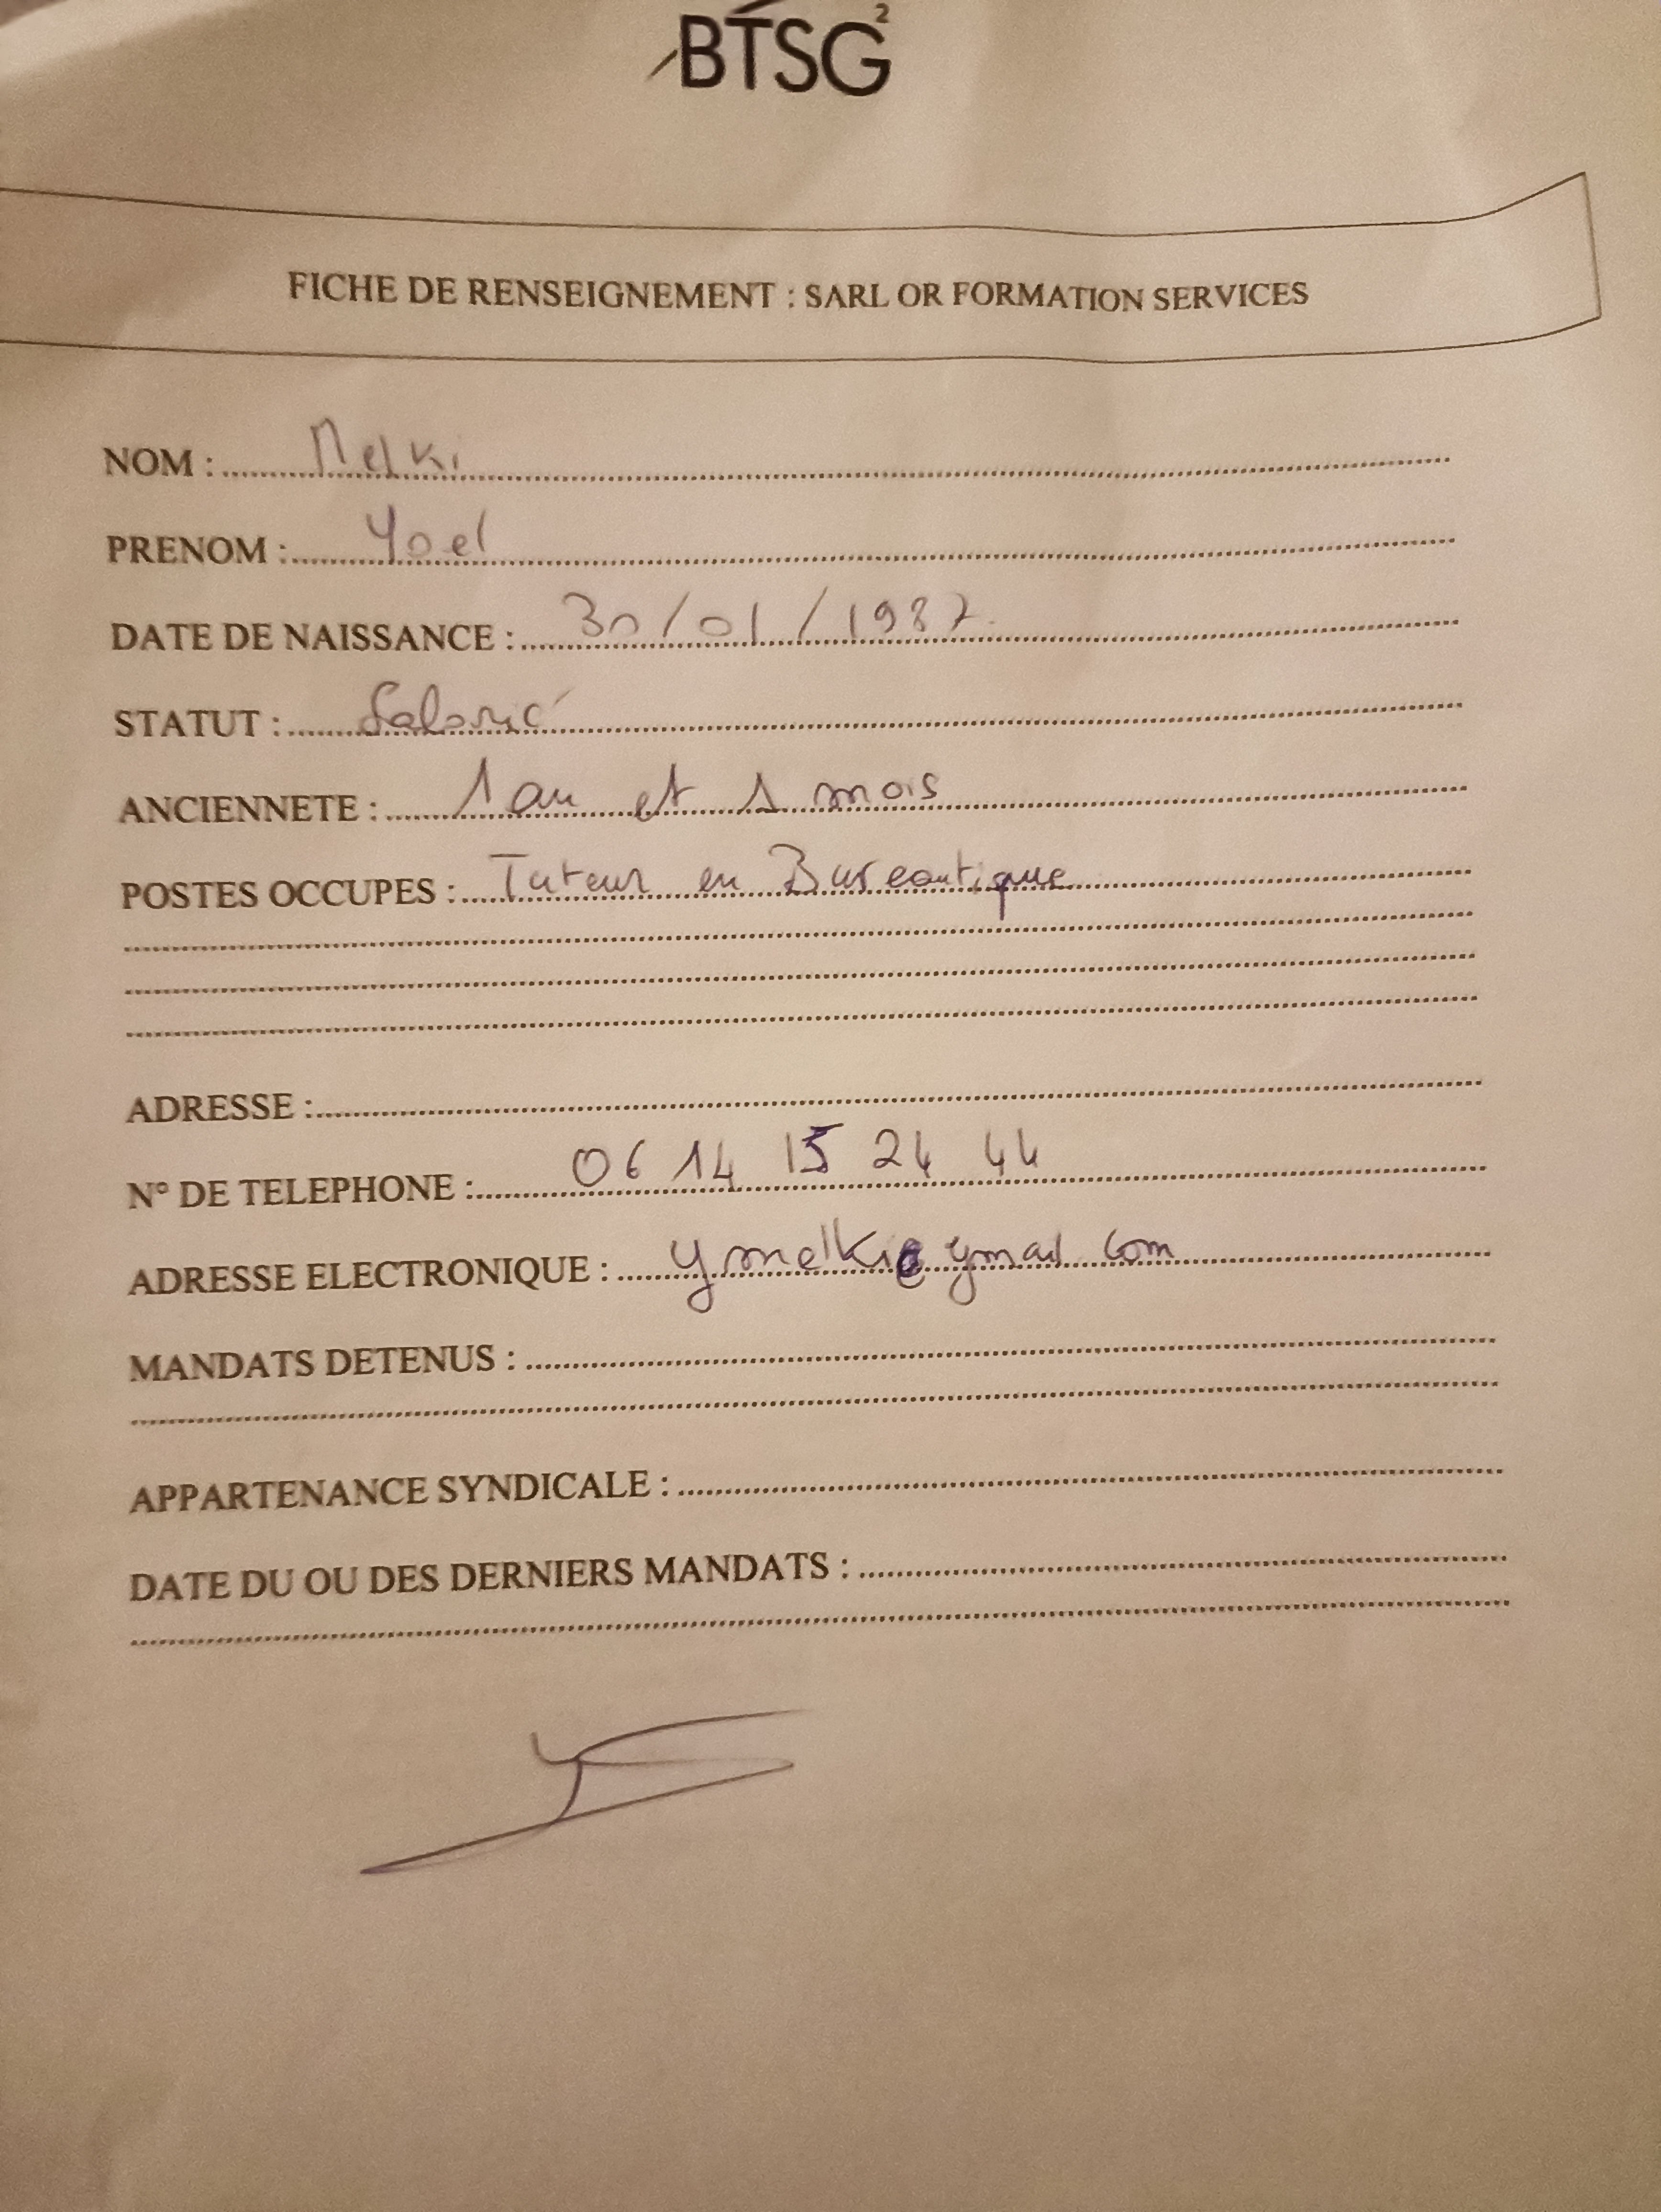 BTSG²
FICHE DE RENSEIGNEMENT : SARL OR FORMATION SERVICES
NOM : Melki
PRENOM : Yoel
DATE DE NAISSANCE : 30/01/1987
STATUT : Salarié
ANCIENNETE : 1 an et 1 mois
POSTES OCCUPES : Tuteur en Bureautique
ADRESSE :
N° DE TELEPHONE : 06 14 15 24 44
ADRESSE ELECTRONIQUE : ymelki@ymail.com
MANDATS DETENUS :
APPARTENANCE SYNDICALE :
DATE DU OU DES DERNIERS MANDATS :